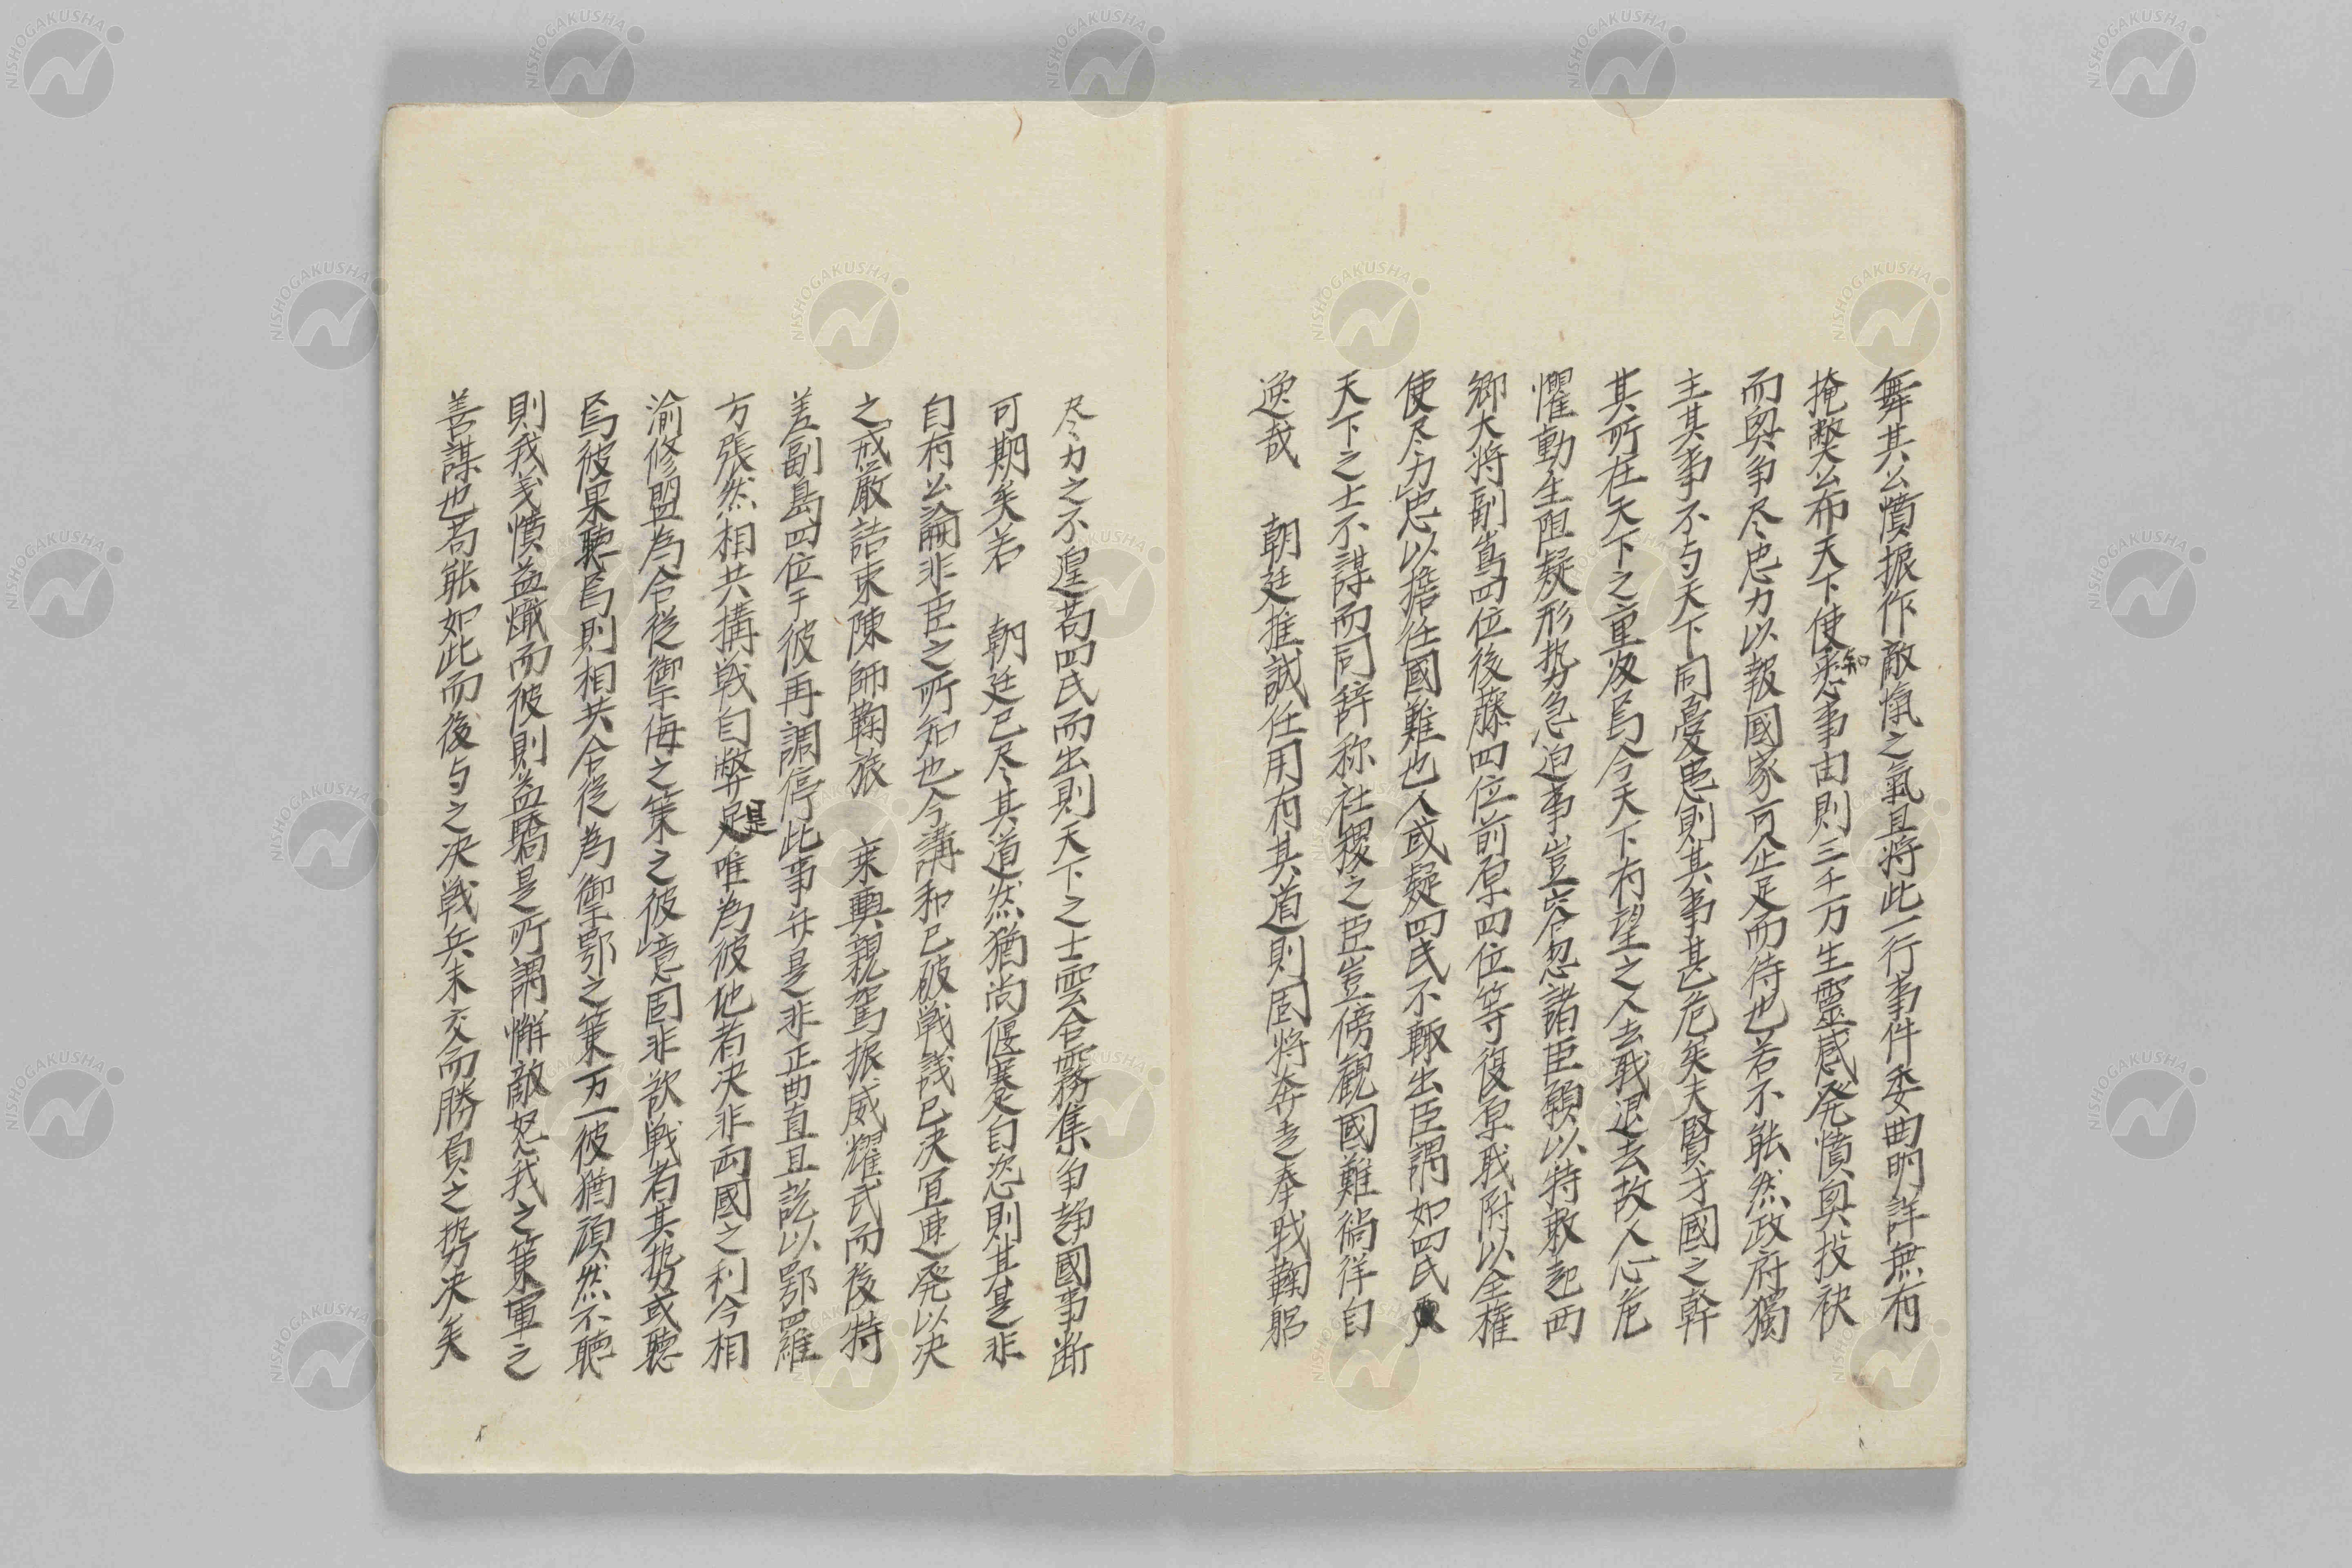 舞其公憤振作敵愾之氣且将此一行事件委曲明詳無有
掩蔽公布天下使悉知事由則三千万生靈感発憤興投袂
而興争尽忠力以報國家可企足而待也若不能然政府獨
主其事不与天下同憂患則其事甚危矣夫賢才國之幹
其所在天下之重及焉今天下有望之人去職退去故人心危
懼動生阻疑形勢急迫事豈容忽諸臣願以特敕起西
郷大将副嶌四位後藤四位前原四位等復原職附以全権
使尽力忠以擔任國難也人或疑四氏不輙出臣謂如四氏
天下之士不謀而同辞称社稷之臣豈傍觀國難徜徉自
逸哉　朝廷推誠任用有其道則固将奔走奉職鞠躬
尽力之不遑苟四氏而出則天下之士雲合霧集争静國事断
可期矣若　朝廷已尽其道然猶尚偃蹇自恣則其是非
自有公論非臣之所知也今講和已破戦議已决宜速発以决
之戒厳詰束陳師鞠旅　乗輿親駕振威耀武而後特
差副島四位于彼再調停此事弁是非正曲直且説以鄂羅
方張然相共搆戦自弊是唯為彼地者决非両國之利今相
渝修盟為合従御侮之策之彼意固非欲戦者其勢或聴
焉彼果聴焉則相共合従為御鄂之策万一彼猶頑然不聴
則我義憤益熾而彼則益驕是所謂懈敵怒我之策軍之
善謀也苟能如此而後与之决戦兵未交而勝負之勢决矣
NISHOGAKUSHA